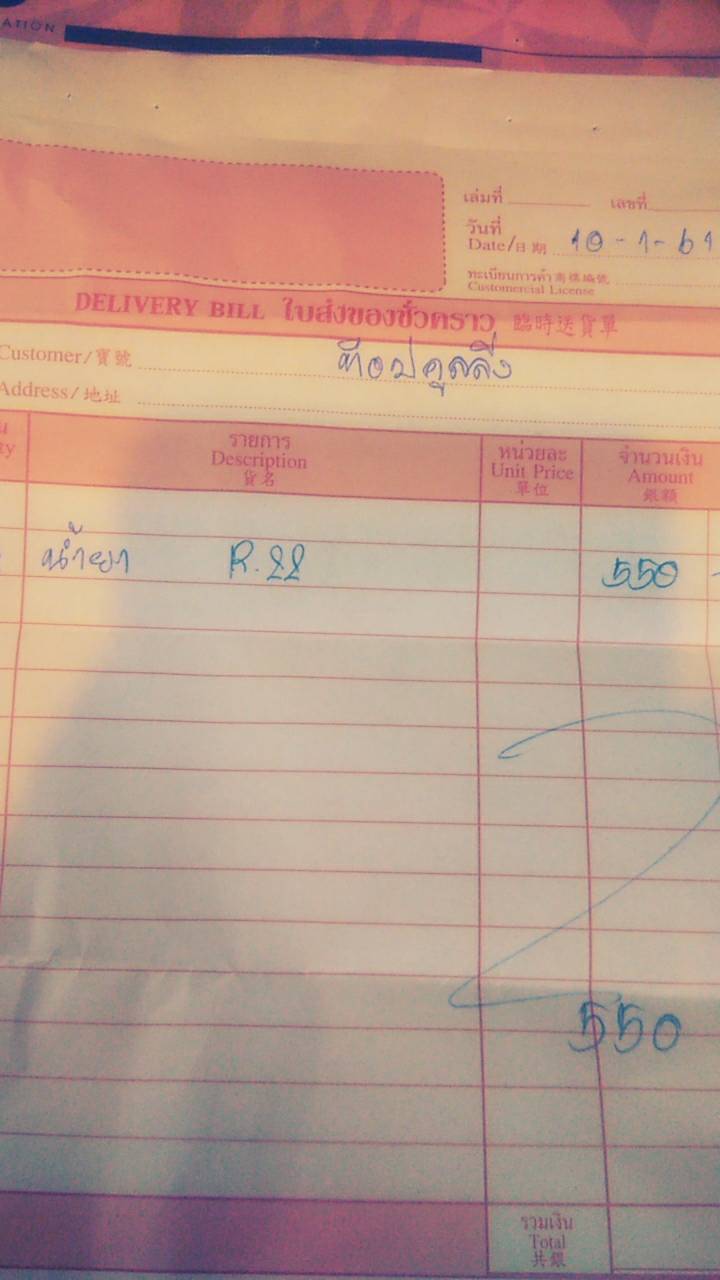 ATION
เล่มที่ เลขที่
วันที่
Date/日期 10-1-61
ทะเบียนการค้า 商標編號
Customercial License
DELIVERY BILL ใบส่งของชั่วคราว 臨時送貨單
Customer/寶號 ท๊อปคูลลิ่ง
Address/地址
รายการ หน่วยละ จำนวนเงิน
ty Description Unit Price Amount
貨名 單位 銀額
น้ำยา R.22 550 -
550
รวมเงิน
Total
共銀